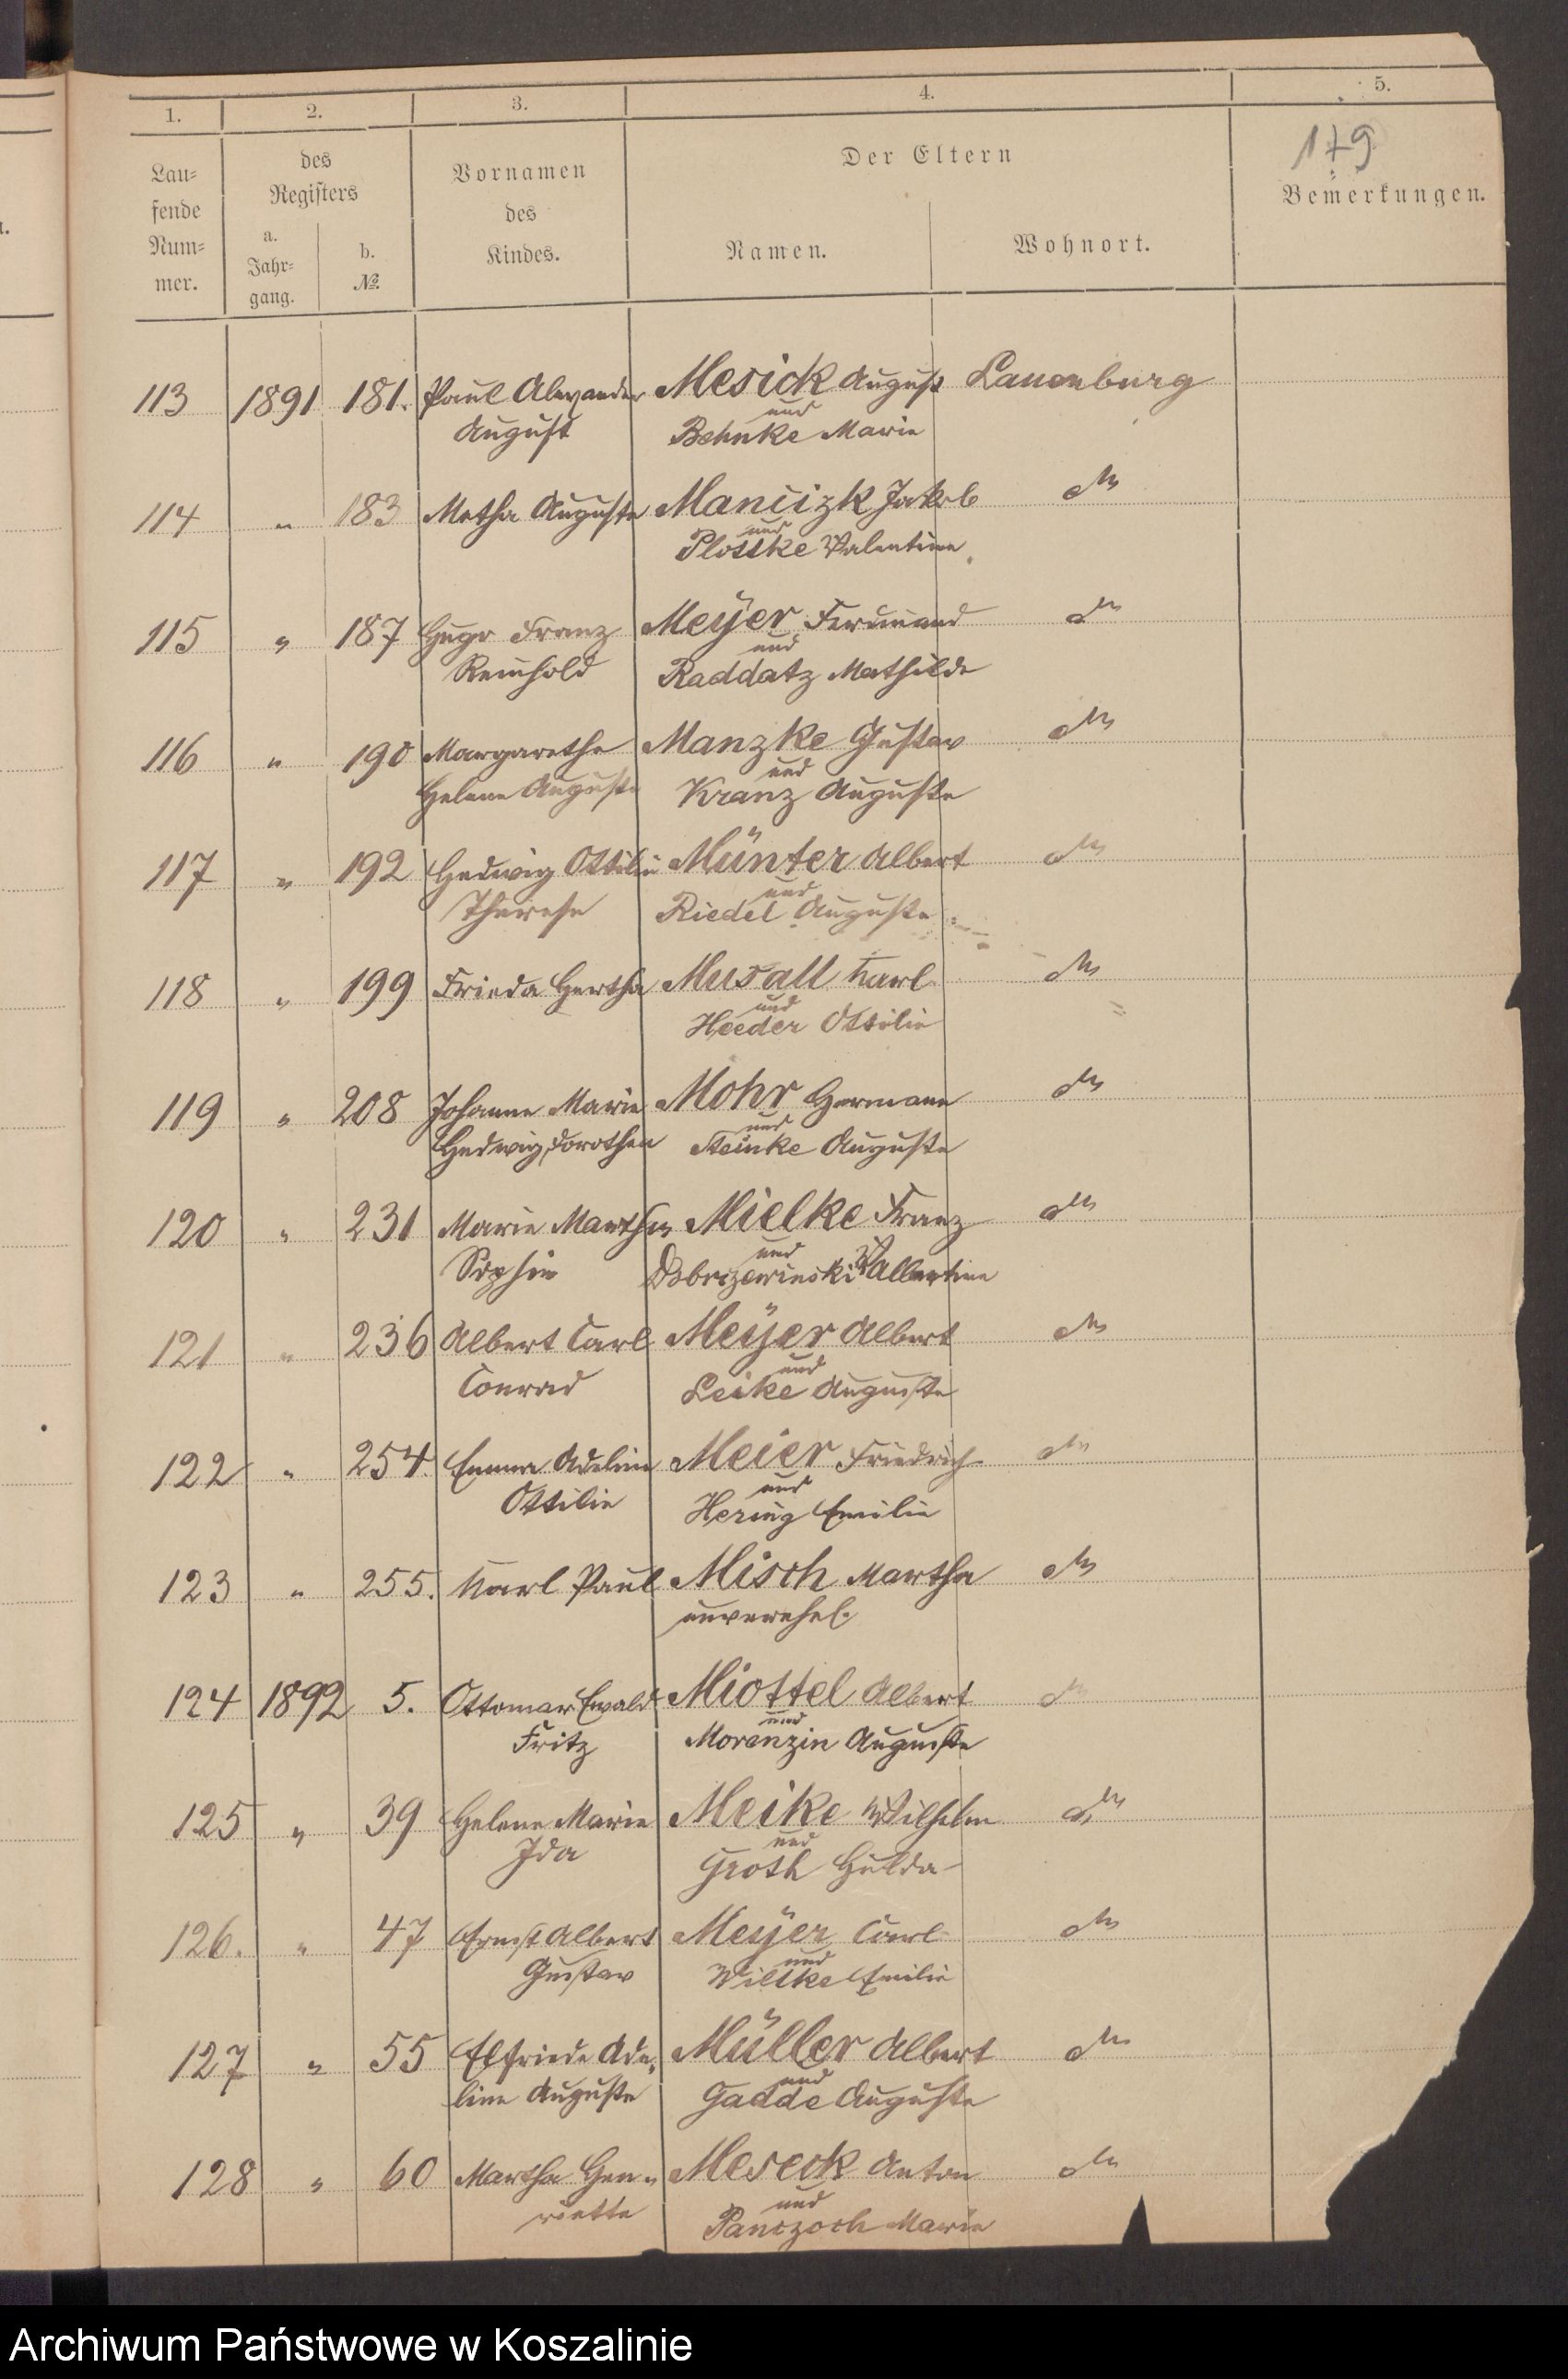 1. 2. 3. 4. 5.
179
Lau=
fende
Num=
mer.
des
Registers
a.
Jahr=
gang.
b.
№.
Vornamen
des
Kindes.
Der Eltern
Namen.
Wohnort.
Bemerkungen.
113 1891 181. Paul Alexander Mesick August Lauenburg
und
August Behnke Marie
114 " 183 Metha Auguste Mancizk Jakob do
und
Plottke Valentine
115 " 187 Hugo Franz Meyer Ferdinand do
und
Reinhold Raddatz Mathilde
116 " 190 Margarethe Manzke Gustav do
und
Helene Auguste Kranz Auguste
117 " 192 Hedwig Ottilie Münter Albert do
und
Therese Riedel Auguste
118 " 199 Frieda Hertha Musall Karl do
und
Heeder Ottilie
119 " 208 Johanne Marie Mohr Hermann do
und
Hedwig Dorothea Steinke Auguste
120 " 231 Marie Martha Mielke Franz do
und
Sophie Albertine
121 " 236 Albert Carl Meyer Albert do
und
Conrad Leike Auguste
122 " 254. Emma Adeline Meier Friedrich do
und
Ottilie Hering Emilie
123 " 255. Karl Paul Misch Martha do
unverehel.
124 1892 5. Ottomar Ewald Miottel Albert do
und
Fritz Morenzin Auguste
125 " 39 Helene Marie Meike Wilhelm do
und
Ida Groth Hulda
126. " 47 Ernst Albert Meyer Carl do
und
Gustav Wiltke Emilie
127 " 55 Elfriede Ade= Müller Albert do
und
line Auguste Gadde Auguste
128 " 60 Martha Hen= Meseck Anton do
und
riette Panczoch Marie
Archiwum Państwowe w Koszalinie